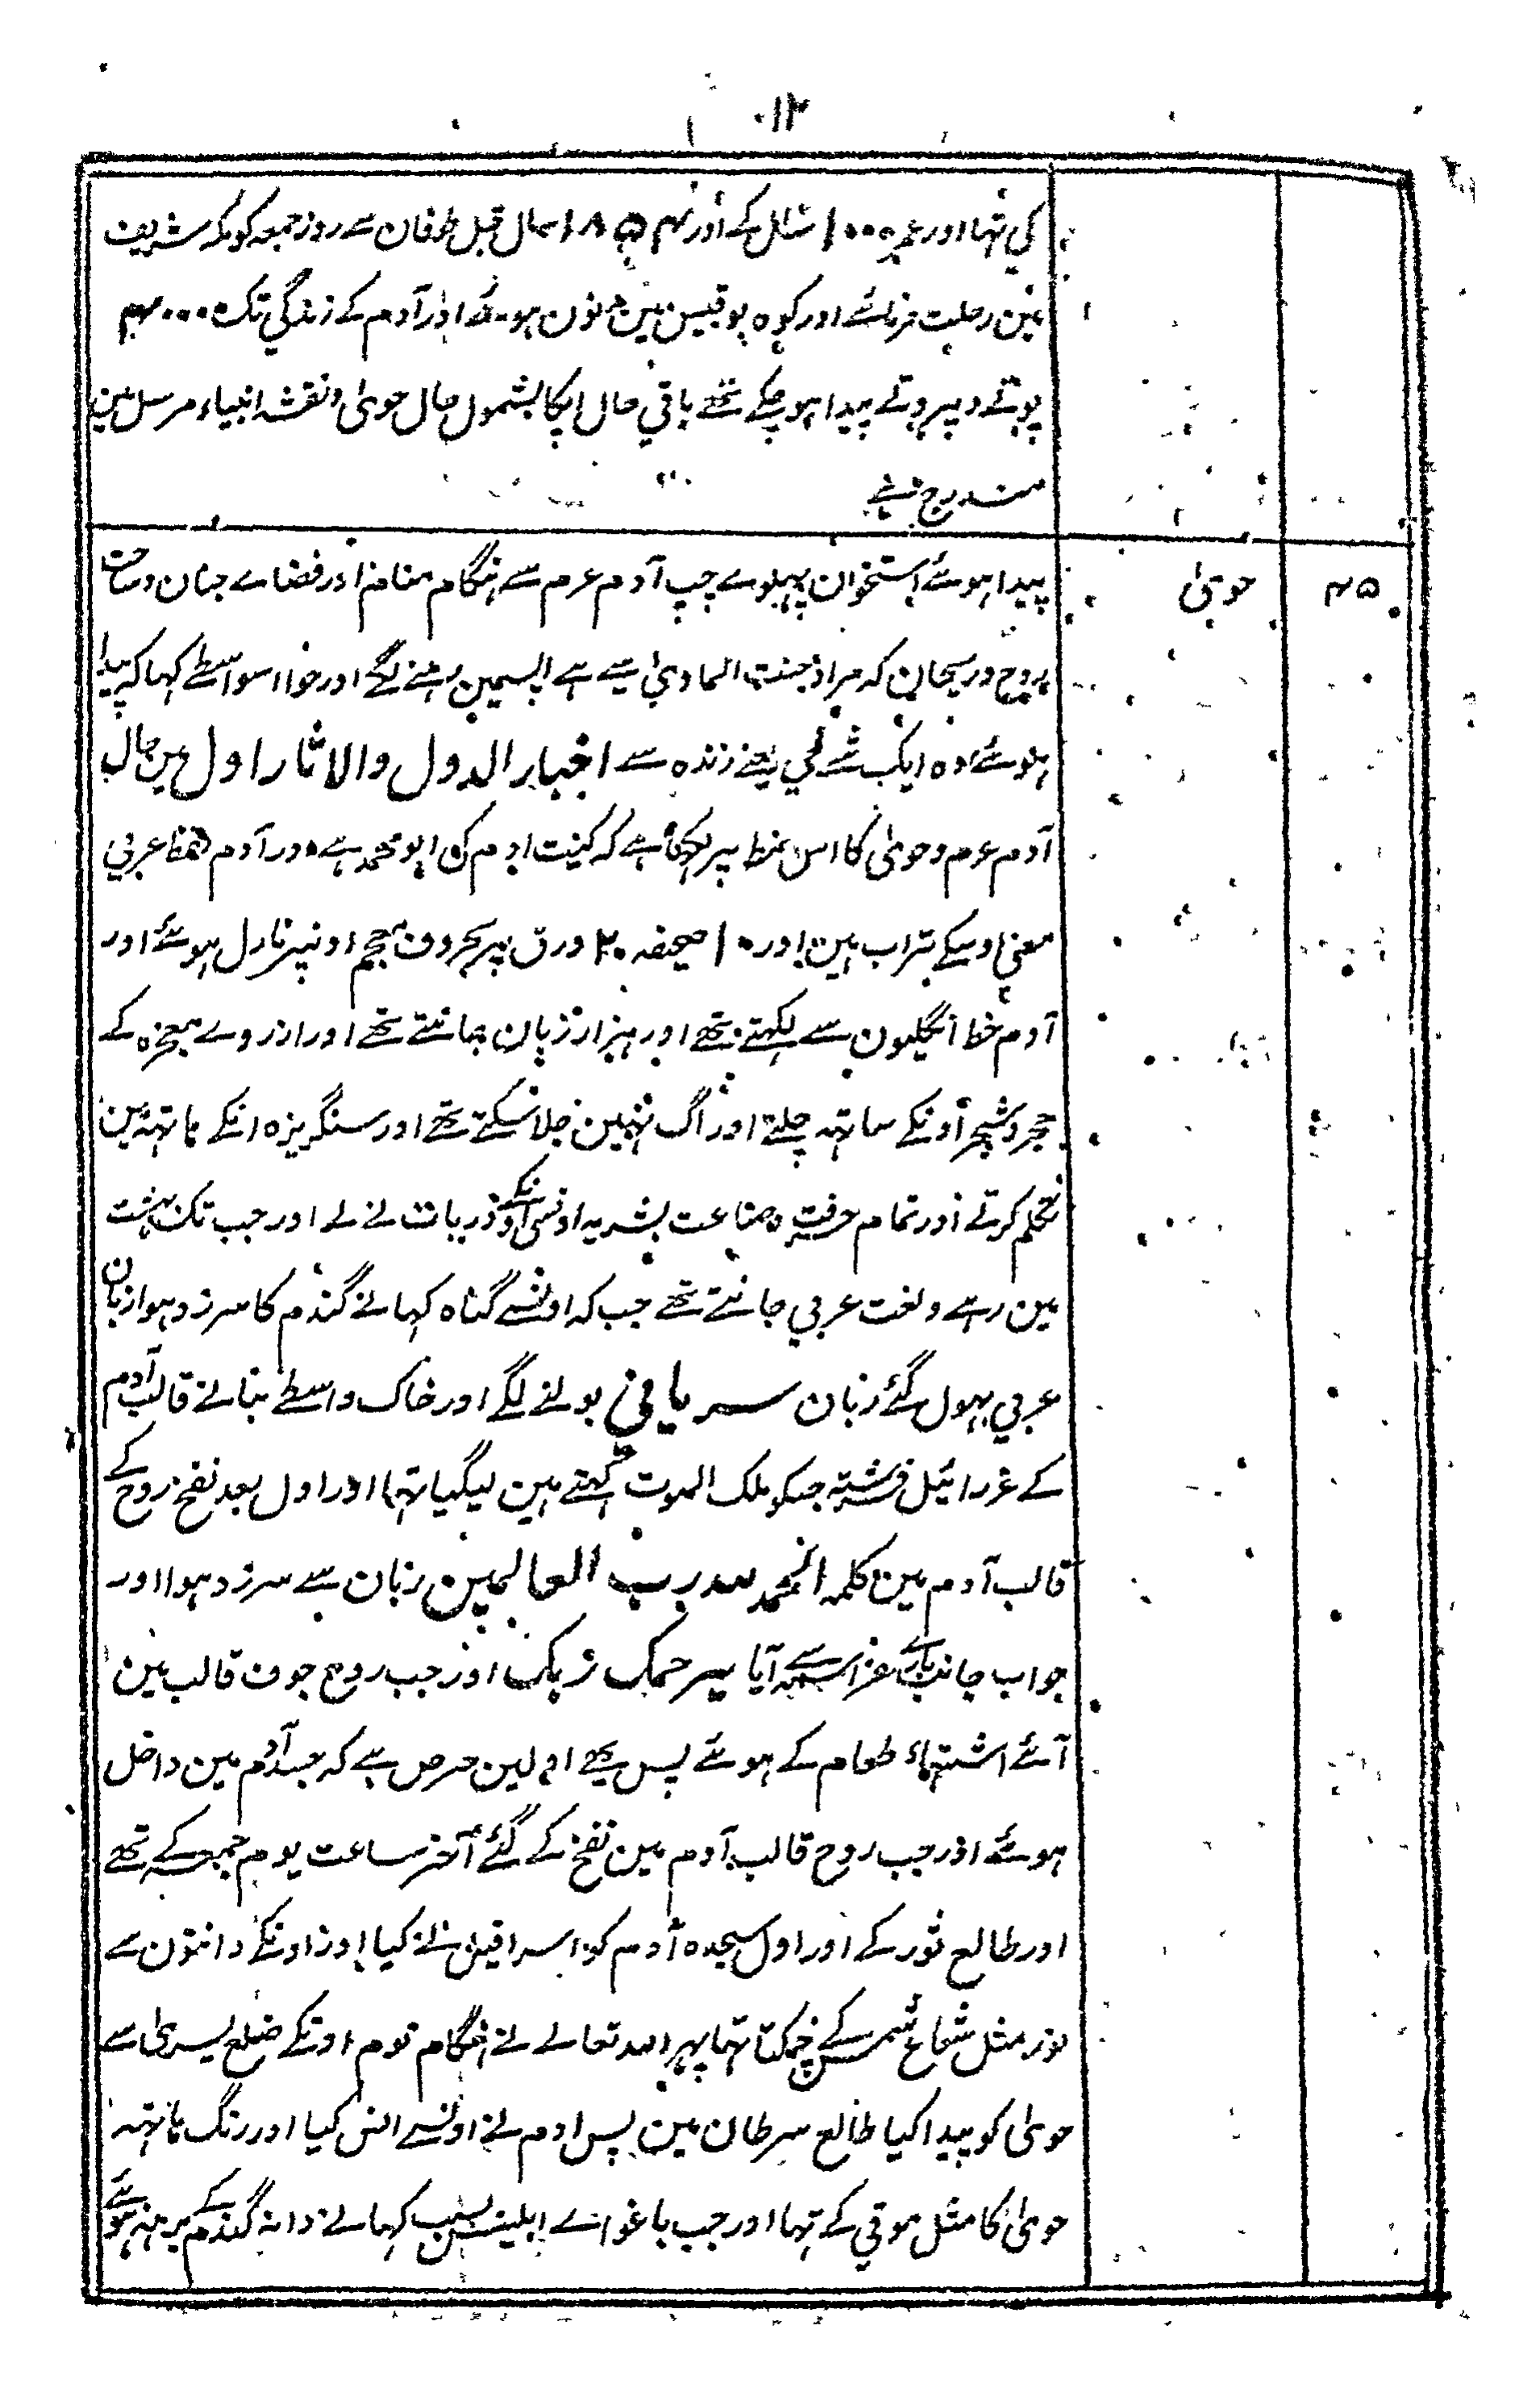 ۱۲
کی تہا اور عمر ۱۰۰۰ سال کے اور سال قبل طوفان سے روز جمعہ کو مکہ شریف
مین رحلت فرمائے اور کوہ بوقبیس مین مدفون ہوئے اور آدم کے زندگی تک ۴۰۰۰۰
پوتے و پروتے پیدا ہو چکے تہے باقی حال اپکا بشمول حال حویٰ و نقشہ انبیاء مرسل مین
مندرج ہے
۴۵ حویٰ پیدا ہوئے استخوان پہلوے چپ آدم عرم سے ہنگام منام اور فضاے جنان و ساحت
روح و ریحان کہ مراد جنت الماویٰ سے ہے رہنے لگے اور حوا اسواسطے کہا کہ پیدا
ہوئے وہ ایک شے حی یعنے زندہ سے اخبار الدول والاثار اول مین حال
آدم عرم و حویٰ کا اس نمط پر لکہا ہے کہ کنیت ادم کی ابو محمد ہے اور آدم لفظ عربی
معنی اوسکے تراب ہین اور ۱۰ صحیفہ ۲۰ ورق پر بحروف معجم اونپر نازل ہوئے اور
آدم خط انگلیون سے لکہتے تہے اور ہزار زبان جانتے تہے اور از روے معجزہ کے
حجر و شجر اونکے ساتہہ چلتے اور اگ نہین جلا سکتے تہے اور سنگریزہ انکے ہاتہہ مین
تکلم کرتے اور تمام حرفت و صناعت بشریہ اونسی اونکے ذریات نے لے اور جب تک بہشت
مین رہے و لغت عربی جانتے تہے جب کہ اونسے گناہ کہانے گندم کا سرزد ہوا زبان
عربی بہول گئے زبان سریانی بولنے لگے اور خاک واسطے بنانے قالب آدم
کے عزرائیل فرشتہ جسکو ملک الموت کہتے ہین لیگیا تہا اور اول بعد نفخ روح کے
قالب آدم مین کلمہ الحمد للہ رب العالمین زبان سے سرزد ہوا اور
جواب جانب باری عز اسمہ سے آیا یرحمک ربک اور جب روح جوف قالب مین
آئے اشتہاء طعام کے ہوئے پس یہے اولین حرص ہے کہ جسد آدم مین داخل
ہوئے اور جب روح قالب آدم مین نفخ کے گئے آخر ساعت یوم جمعہ کے تہے
اور طالع ثور کے اور اول سجدہ آدم کو اسرافیل نے کیا اور اونکے دانتون سے
نور مثل شعاع شمس کے چمکتا تہا پہر اللہ تعالے نے ہنگام نوم اونکے ضلع یسریٰ سے
حویٰ کو پیدا کیا طالع سرطان مین پس ادم نے اونسے انس کیا اور رنگ ہاتہہ
حویٰ کا مثل موتی کے تہا اور جب باغواے ابلیس بسبب کہانے دانہ گندم کے برہنہ ہوئے